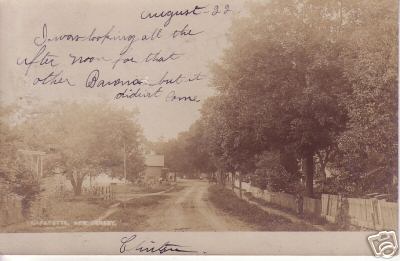 August - 22
I was looking all the
after noon for that
other Banana but it
didint come
LAFAYETTE, NEW JERSEY.
Clinton